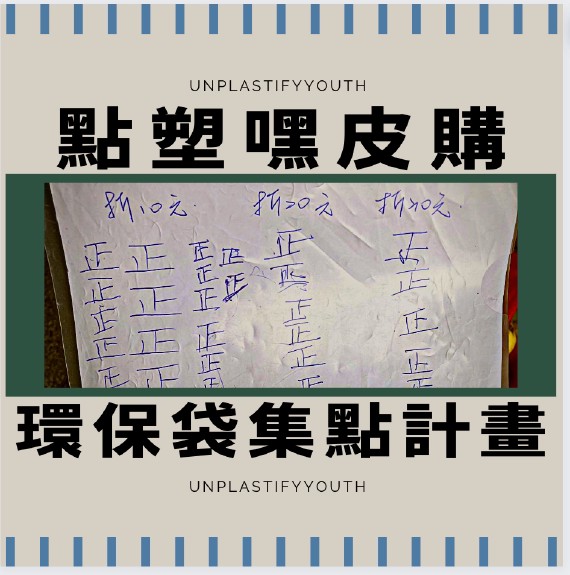 UNPLASTIFYYOUTH
點塑嘿皮購
折10元 折20元 折40元
正 正 正 正 正 正
正 正 正 正 正 正
正 正 正 正 正
正 正 正 正 正
正 正 正 正 正
環保袋集點計畫
UNPLASTIFYYOUTH